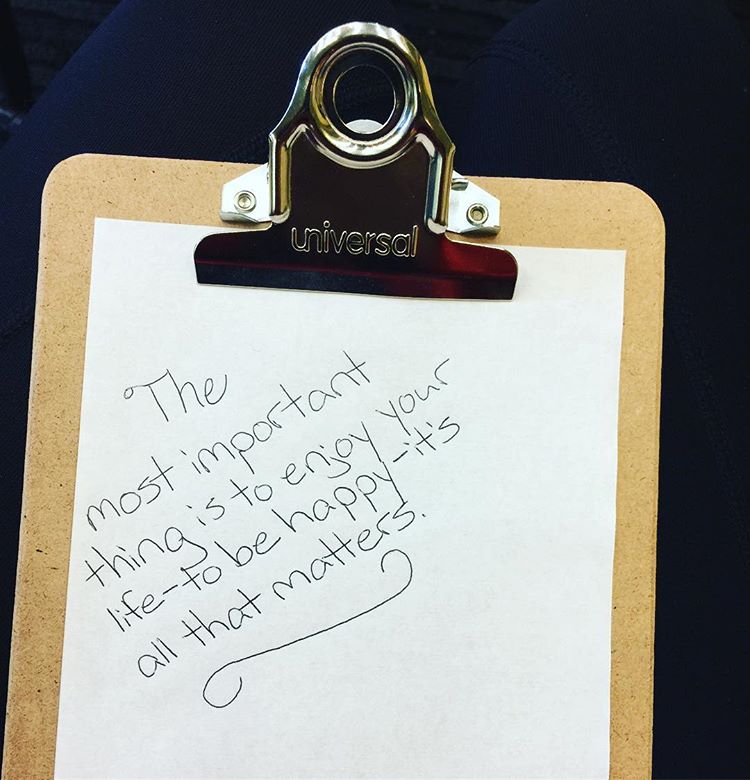 universal
The
most important
thing is to enjoy your
life-to be happy-it's
all that matters.